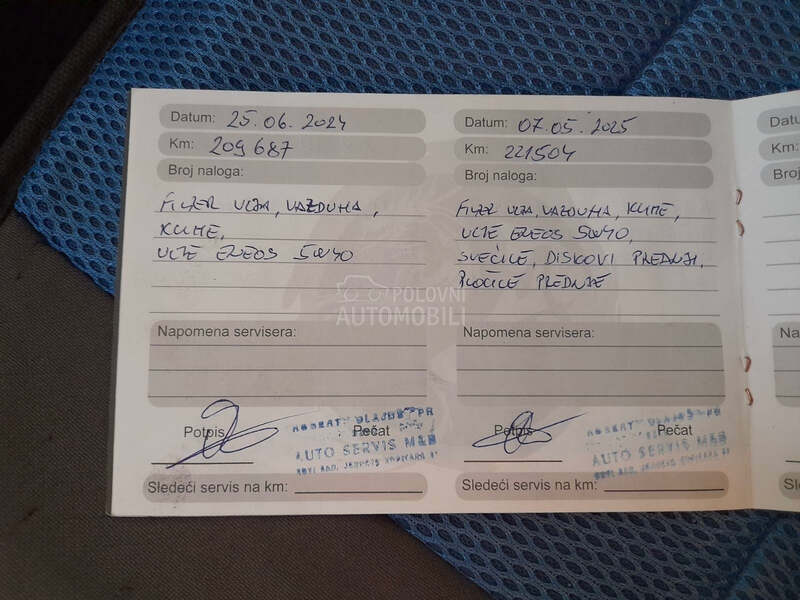 Datum: 25.06.2024
Km: 209 687
Broj naloga:
FILTER ULJA, VAZDUHA,
KLIME,
ULJE ENEOS 5W40
Napomena servisera:
Potpis
Pečat
AUTO SERVIS M&B
Sledeći servis na km:
Datum: 07.05.2025
Km: 221504
Broj naloga:
FILTER ULJA, VAZDUHA, KLIME,
ULJE ENEOS 5W40,
SVEĆICE, DISKOVI PREDNJI,
PLOČICE PREDNJE
Napomena servisera:
Potpis
Pečat
AUTO SERVIS M&B
Sledeći servis na km:
POLOVNI
AUTOMOBILI
Datu
Km:
Broj
Na